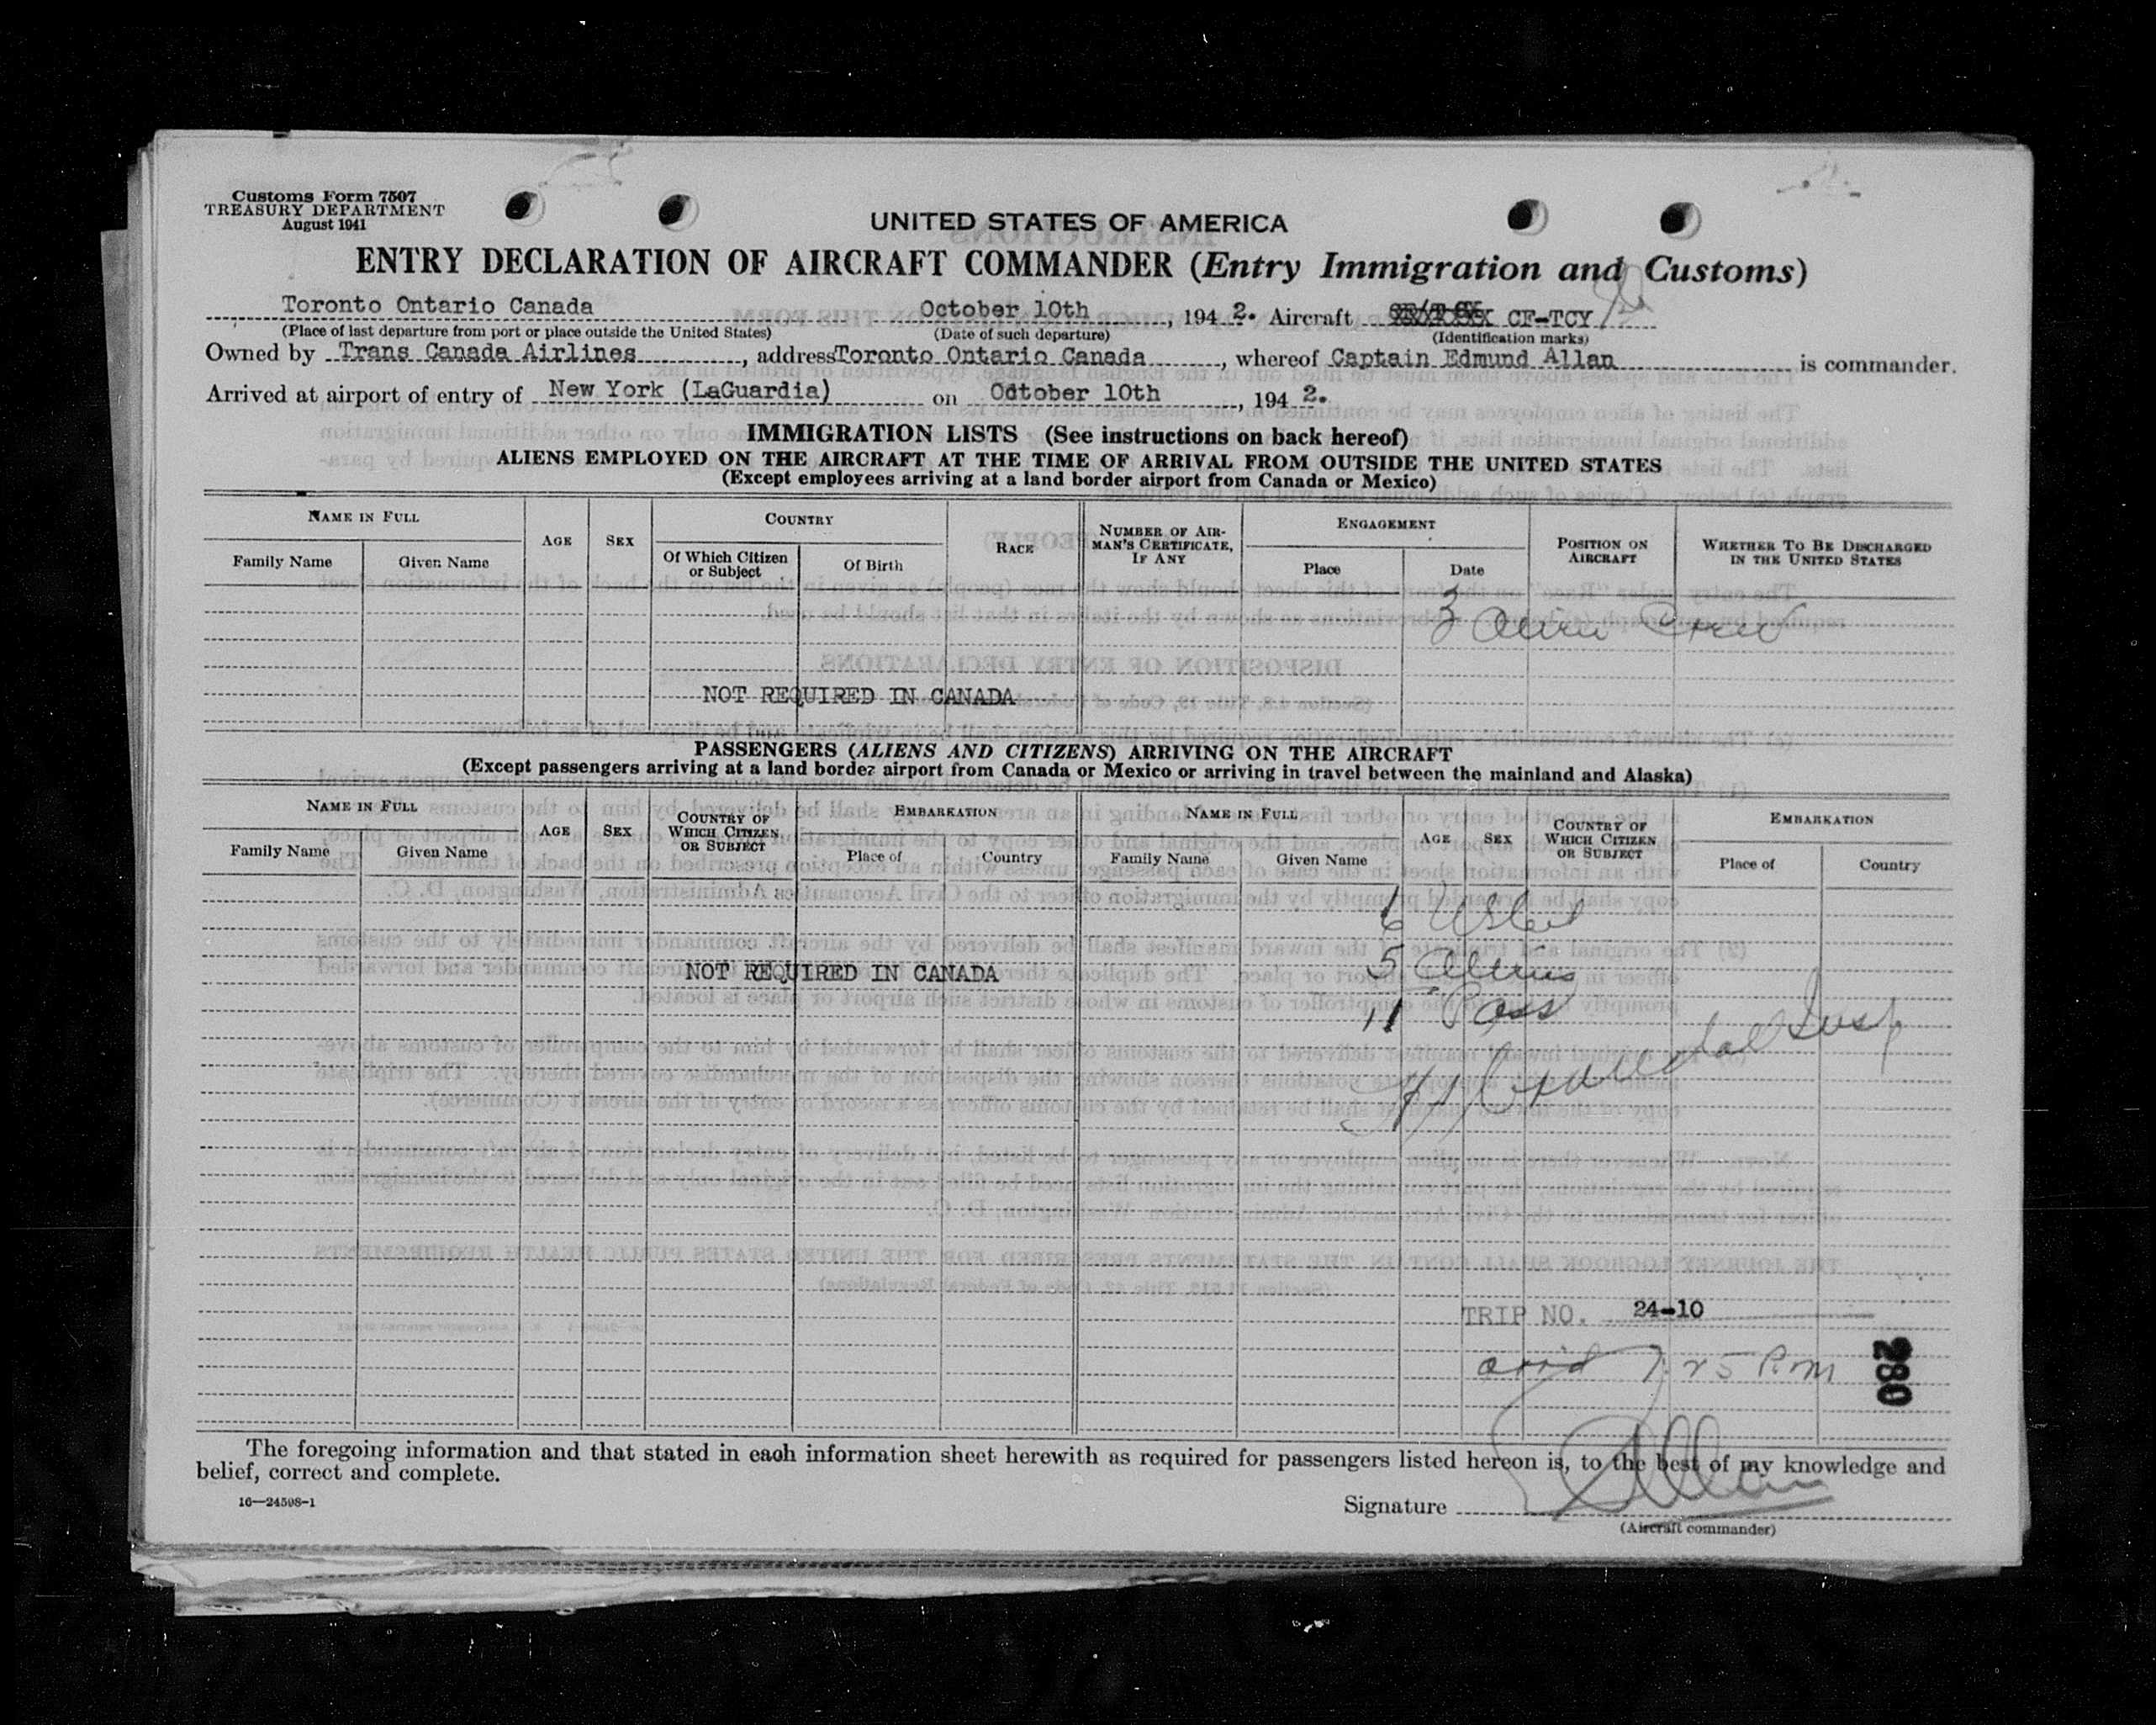 Customs Form 7507
TREASURY DEPARTMENT
August 1941
UNITED STATES OF AMERICA
ENTRY DECLARATION OF AIRCRAFT COMMANDER (Entry Immigration and Customs)
Toronto Ontario Canada October 10th, 1942. Aircraft CF-TCY
(Place of last departure from port or place outside the United States) (Date of such departure) (Identification marks)
Owned by Trans Canada Airlines, address Toronto Ontario Canada, whereof Captain Edmund Allan is commander.
Arrived at airport of entry of New York (LaGuardia) on Odtober 10th, 1942.
IMMIGRATION LISTS (See instructions on back hereof)
ALIENS EMPLOYED ON THE AIRCRAFT AT THE TIME OF ARRIVAL FROM OUTSIDE THE UNITED STATES
(Except employees arriving at a land border airport from Canada or Mexico)
NAME IN FULL AGE SEX COUNTRY RACE NUMBER OF AIRMAN'S CERTIFICATE, IF ANY ENGAGEMENT POSITION ON AIRCRAFT WHETHER TO BE DISCHARGED IN THE UNITED STATES
Family Name Given Name Of Which Citizen or Subject Of Birth Place Date
3 Alien Crew
NOT REQUIRED IN CANADA
PASSENGERS (ALIENS AND CITIZENS) ARRIVING ON THE AIRCRAFT
(Except passengers arriving at a land border airport from Canada or Mexico or arriving in travel between the mainland and Alaska)
NAME IN FULL AGE SEX COUNTRY OF WHICH CITIZEN OR SUBJECT EMBARKATION NAME IN FULL AGE SEX COUNTRY OF WHICH CITIZEN OR SUBJECT EMBARKATION
Family Name Given Name Place of Country Family Name Given Name Place of Country
6
5 Aliens
NOT REQUIRED IN CANADA
11 Pass
Insp
TRIP NO. 24-10
arrid 7:25 P.m
280
The foregoing information and that stated in each information sheet herewith as required for passengers listed hereon is, to the best of my knowledge and
belief, correct and complete.
16—24598-1
Signature Allan
(Aircraft commander)